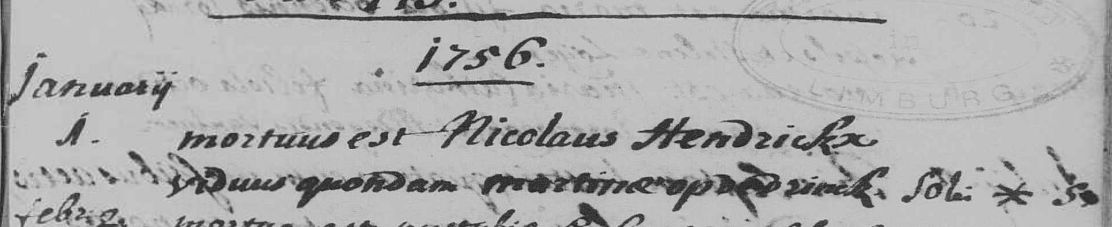 1756.
Januarij
1. mortuus est Nicolaus Hendrickx
viduus quondam martinæ op dedrinck. Sol: * 5
febr. 2. mortua est
MBURG